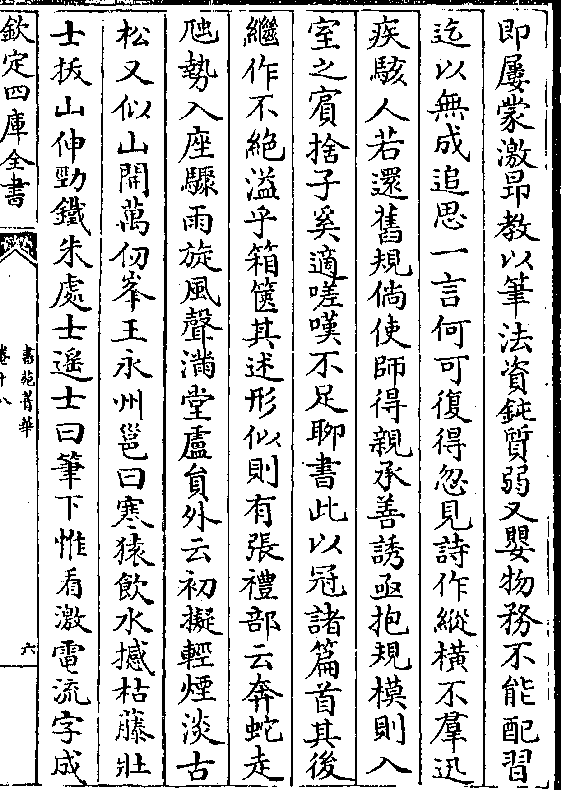 即屢蒙激昻教以筆法資鈍質弱又嬰物務不能配習
迄以無成追思一言何可復得忽見詩作縱橫不羣迅
疾駭人若還舊規倘使師得親承善誘亟抱規模則入
室之賔捨子奚適嗟嘆不足聊書此以冠諸篇首其後
繼作不絶溢乎箱篋其述形似則有張禮部云奔蛇走
虺勢入座驟雨旋風聲滿堂盧負外云初擬輕煙淡古
松又似山開萬仞峯王永州邕曰寒猿飲水撼枯藤壯
士拔山伸勁鐵朱處士遙士曰筆下惟看激電流字成
欽定四庫全書
書苑菁華
卷十八
六